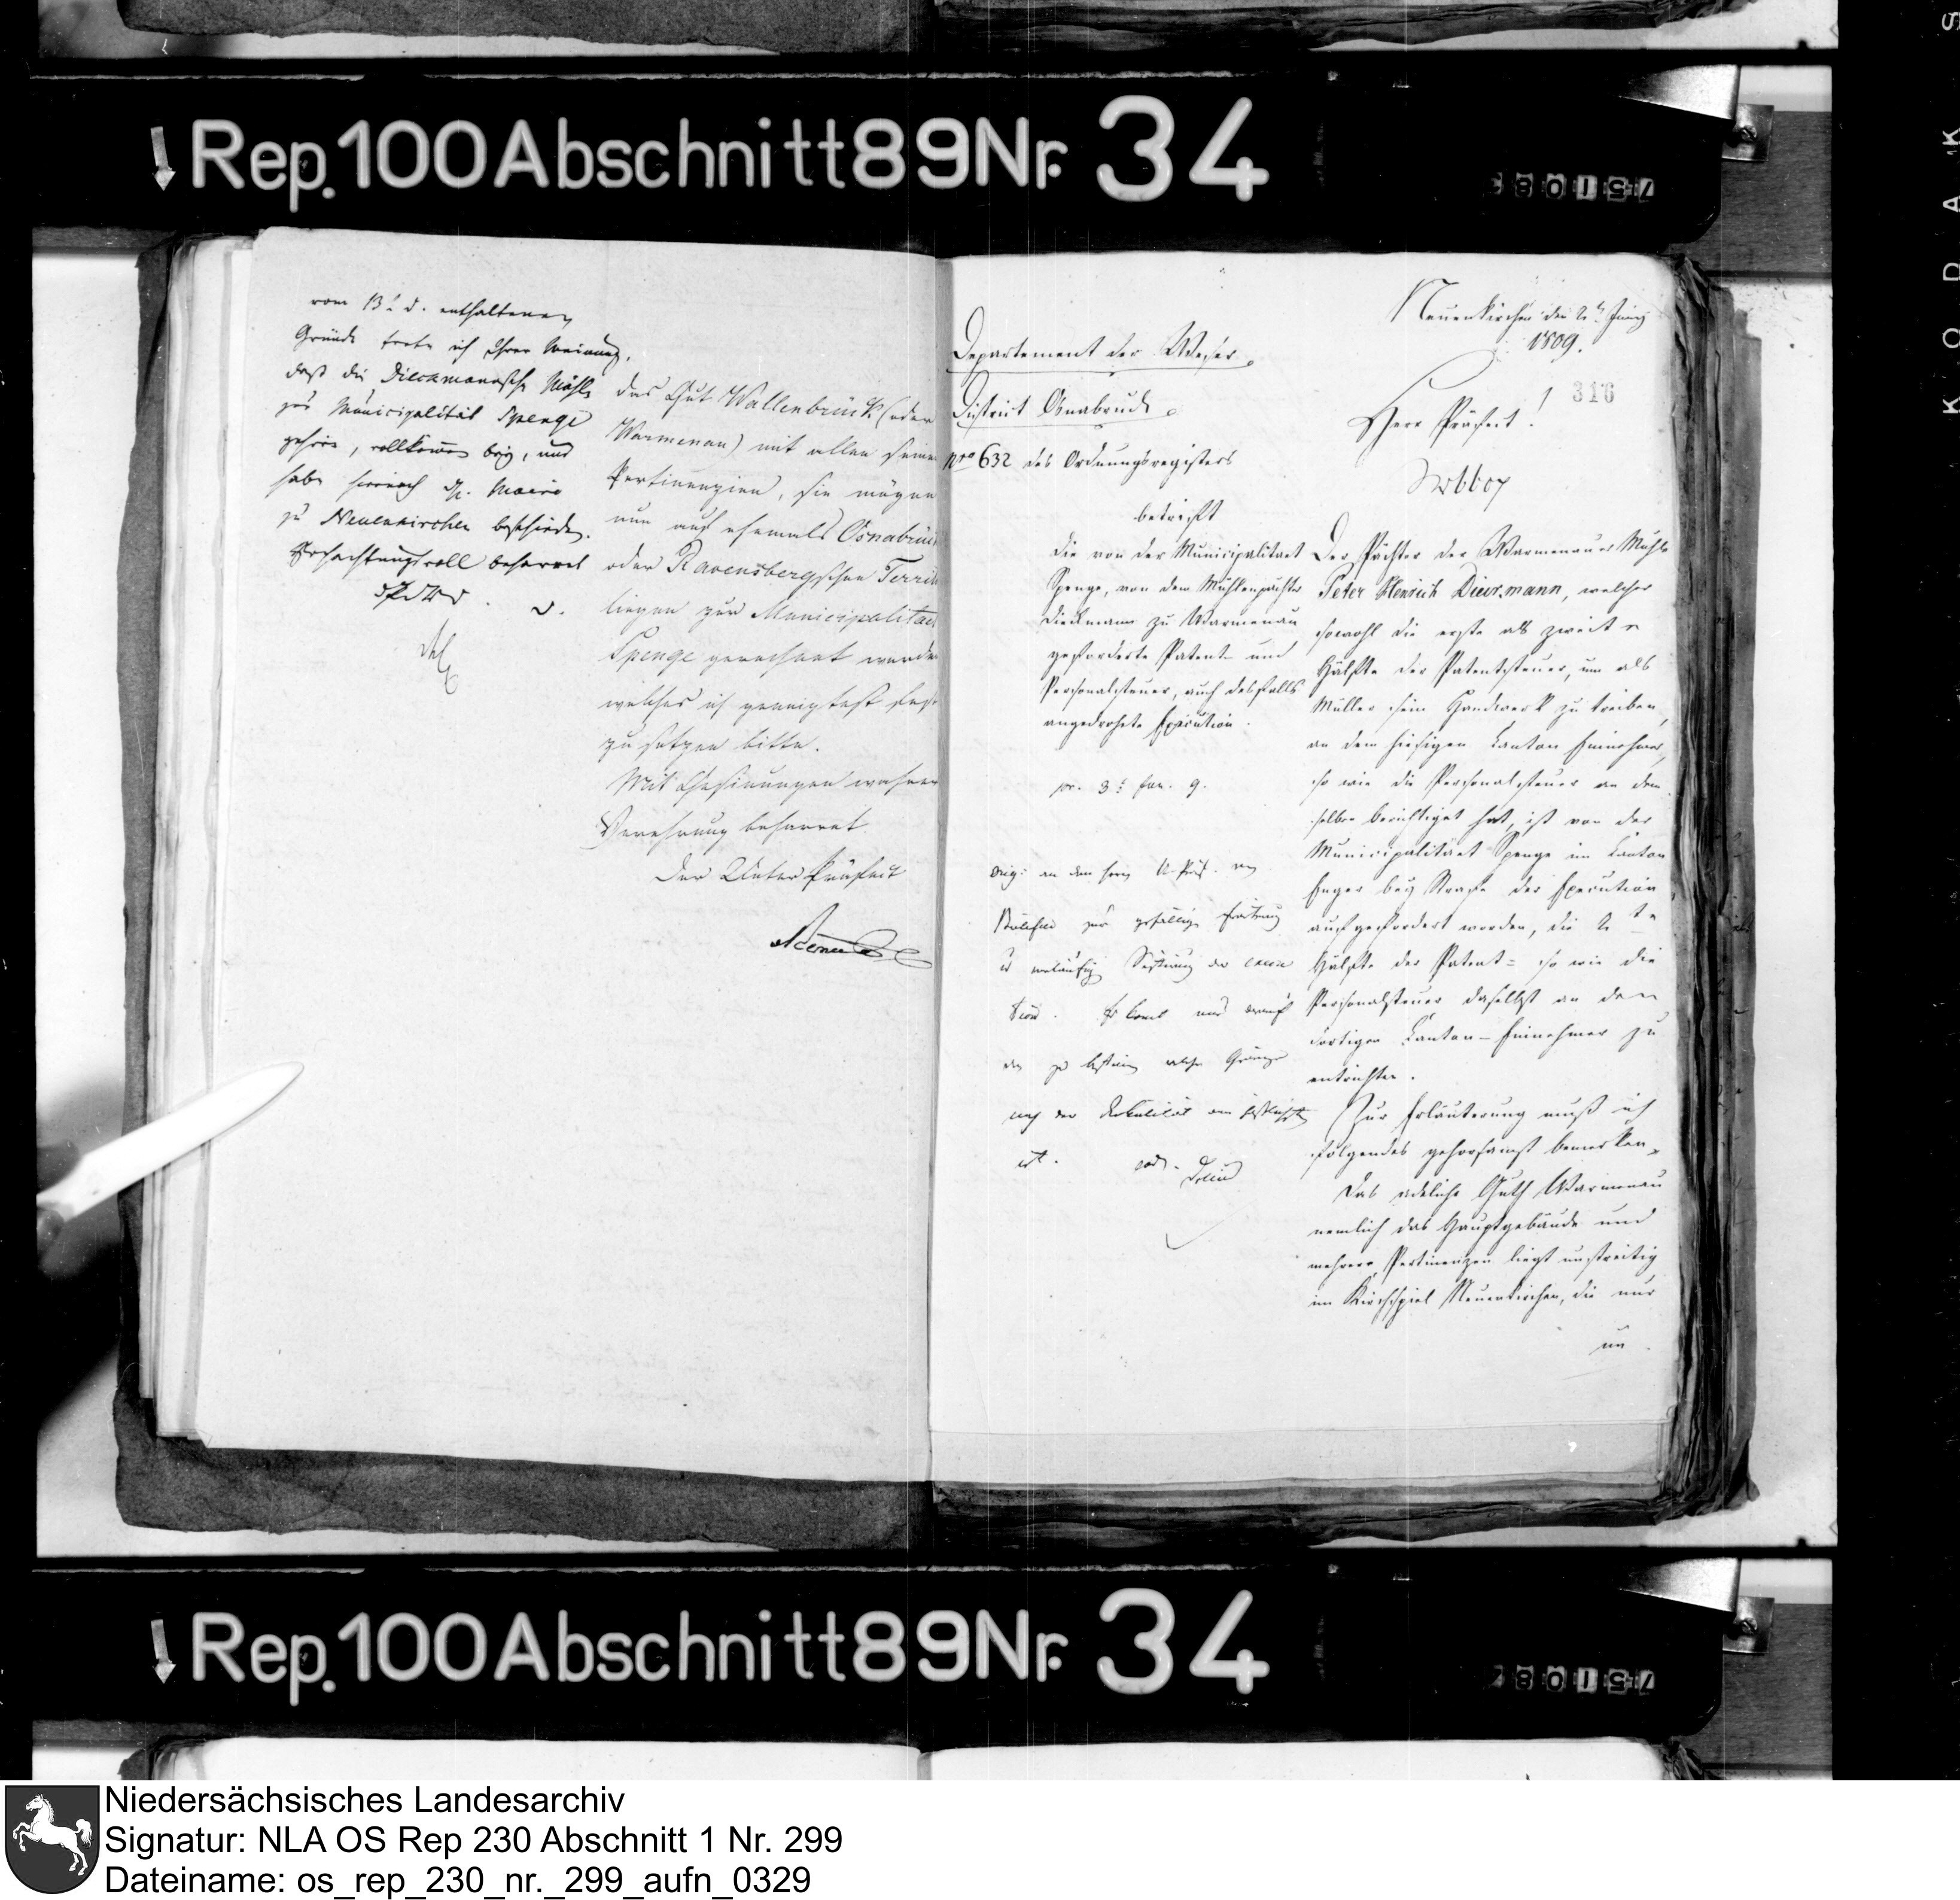 Rep. 100 Abschnitt 89 Nr. 34
vom 13t d. enthaltenen
Gründe trete ich Ihrer Meinung,
daß die Dieckmannsche Mühle
zur Municipalität Spenge
gehöre, vollkommen bey, und
habe hiernach H. Maire
zu Neuenkirchen beschieden.
Hochachtungsvoll beharret
das Gut Wallenbrück (oder
Warmenau) mit allen seinen
Pertinenzien, sie mögen
nun auf ehemals Osnabrück
oder Ravensbergschen Territ
liegen zur Municipalitaet
Spenge gerechnet werden
welches ich geneigtest fest
zu setzen bitte.
Mit Gesinnungen wahrer
Verehrung beharret
Der Unter Präfect
Departement der Weser.
District Osnabruck.
Nro 632 des Ordnungsregisters
betrifft
die von der Municipalitaet
Spenge, von dem Mühlenpächter
Dieckmann zu Warmenau
geforderte Patent- und
Personalsteuer, auch desfalls
angedrohete Execution.
pr. 3t Jun. 9.
orig: an den Herrn U-Präf. von
Bielefeld zur gefälligen
vorläufig Sistirung der Execu
tion. Es komt
zu
der Lokalität am
ist.
Neuenkirchen den 2t Juny
1809.
316
Herr Präfect!
Der Pächter der Warmenauer Mühle
Peter Henrich Dieckmann, welcher
sowohl die erste als zweite
Hälfte der Patentsteuer, um als
Müller sein Handwerk zu treiben,
an dem hiesigen Canton Einnehmer,
so wie die Personalsteuer an dem
selben berichtiget hat, ist von der
Municipalitaet Spenge im Canton
Enger bey Strafe der Execution
aufgefordert worden, die 2te
Hälfte der Patent= so wie die
Personalsteuer daselbst an den
dortigen Canton-Einnehmer zu
entrichten.
Zur Erläuterung muß ich
folgendes gehorsamst bemerken,
Das adeliche Guth Warmenau
nemlich das Hauptgebäude und
mehrere Pertinenzen liegt unstreitig
im Kirchspiel Neuenkirchen, die nur
un
Rep. 100 Abschnitt 89 Nr. 34
KODAK S
Niedersächsisches Landesarchiv
Signatur: NLA OS Rep 230 Abschnitt 1 Nr. 299
Dateiname: os_rep_230_nr._299_aufn_0329